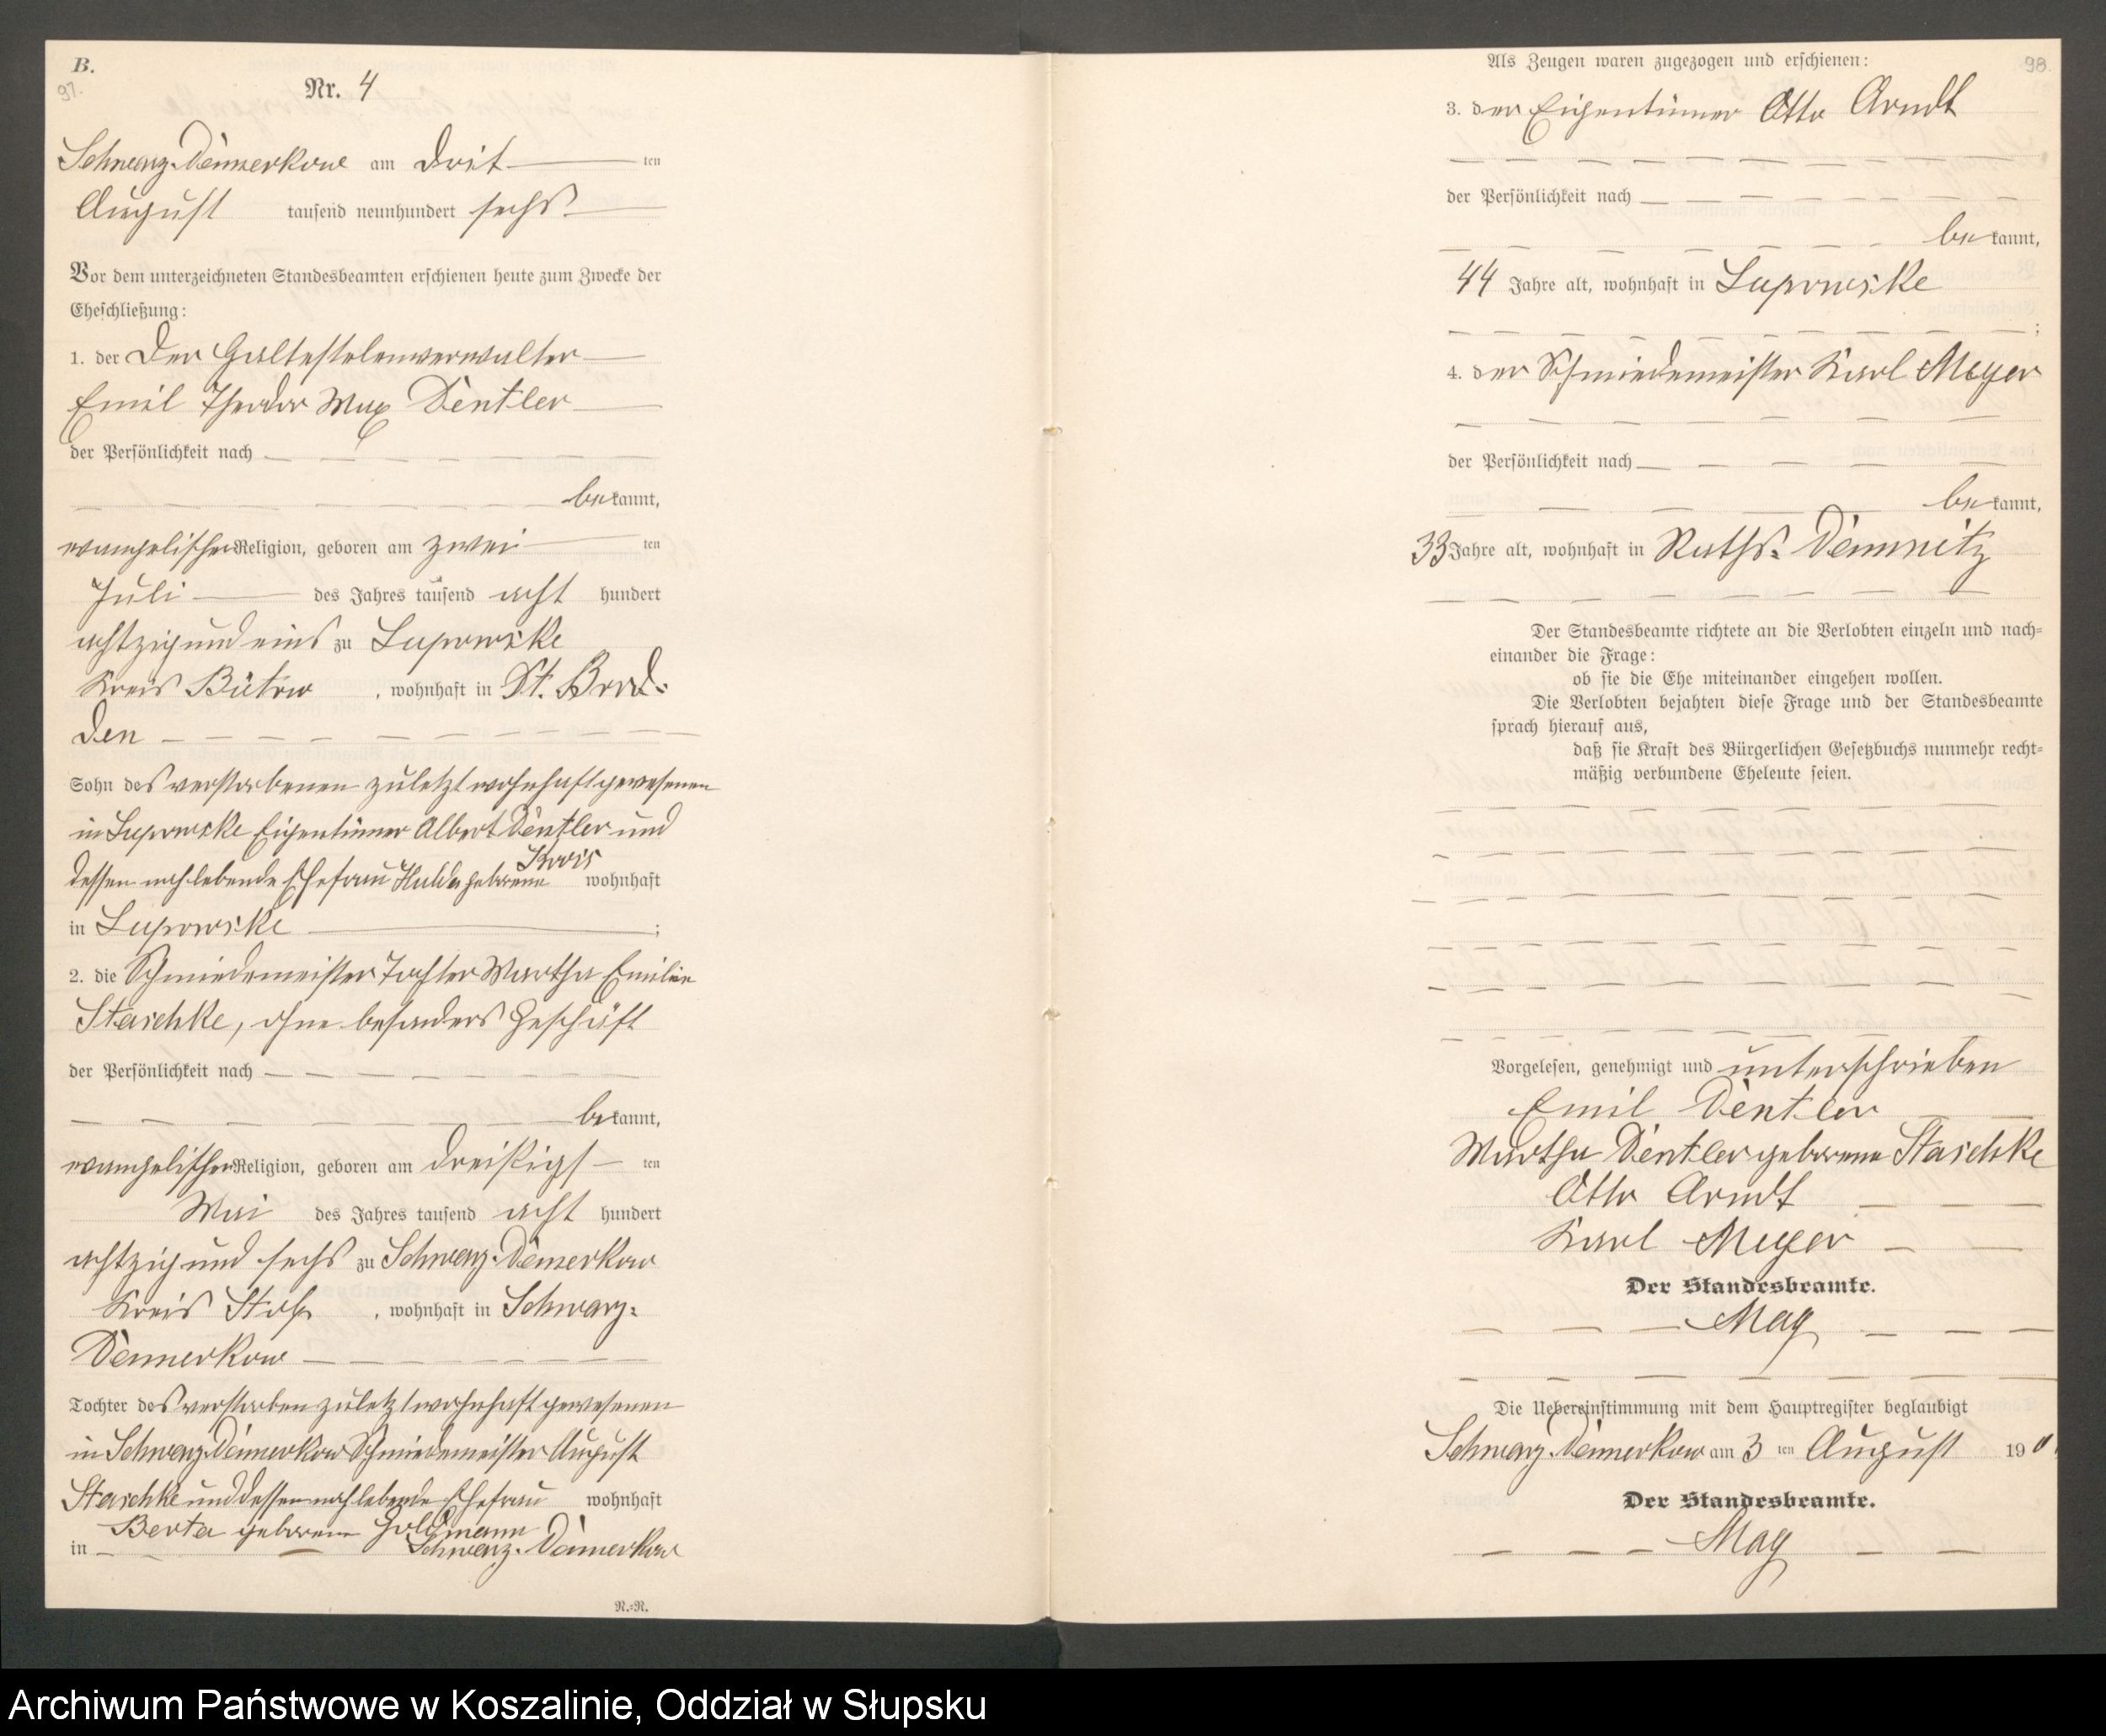 B.
97.
Nr. 4
Schwarz-Damerkow am drit ten
August tausend neunhundert sechs
Vor dem unterzeichneten Standesbeamten erschienen heute zum Zwecke der
Eheschließung:
1. der Der Haltestelenverwalter
Emil Theodor Max Dentler
der Persönlichkeit nach
be kannt,
evangelischer Religion, geboren am zwei ten
Juli des Jahres tausend acht hundert
achtzig und eins zu Lupowske
Kreis Bütow, wohnhaft in St. Brod-
den
Sohn des verstorbenen zuletzt wohnhaft gewesenen
in Lupowske Eigentümer Albert Dentler und
dessen nachlebende Ehefrau Hulda geborene wohnhaft
in Lupowske ;
2. die Schmiedemeister Tochter Martha Emilie
Staschke, ohne besonders Geschäft
der Persönlichkeit nach
be kannt,
evangelischer Religion, geboren am dreißigs ten
Mai des Jahres tausend acht hundert
achtzig und sechs zu Schwarz-Damerkow
Kreis Stolp, wohnhaft in Schwarz-
Damerkow
Tochter des verstorben zuletzt wohnhaft gewesenen
in Schwarz-Damerkow Schmiedemeister August
Staschke und dessen nachlebende Ehefrau wohnhaft
Berta geborene Goldmann
in Schwarz-Damerkow
R.=R.
98.
Als Zeugen waren zugezogen und erschienen:
3. der Eigentümer Otto Arndt
der Persönlichkeit nach
be kannt,
44 Jahre alt, wohnhaft in Lupowske
;
4. der Schmiedemeister Karl Meyer
der Persönlichkeit nach
be kannt,
33 Jahre alt, wohnhaft in Raths-Damnitz
Der Standesbeamte richtete an die Verlobten einzeln und nach=
einander die Frage:
ob sie die Ehe miteinander eingehen wollen.
Die Verlobten bejahten diese Frage und der Standesbeamte
sprach hierauf aus,
daß sie kraft des Bürgerlichen Gesetzbuchs nunmehr recht=
mäßig verbundene Eheleute seien.
Vorgelesen, genehmigt und unterschrieben
Emil Dentler
Martha Dentler geborene Staschke
Otto Arndt
Karl Meyer
Der Standesbeamte.
Mag
Die Uebereinstimmung mit dem Hauptregister beglaubigt
Schwarz-Damerkow am 3 ten August 190
Der Standesbeamte.
Mag
Archiwum Państwowe w Koszalinie, Oddział w Słupsku